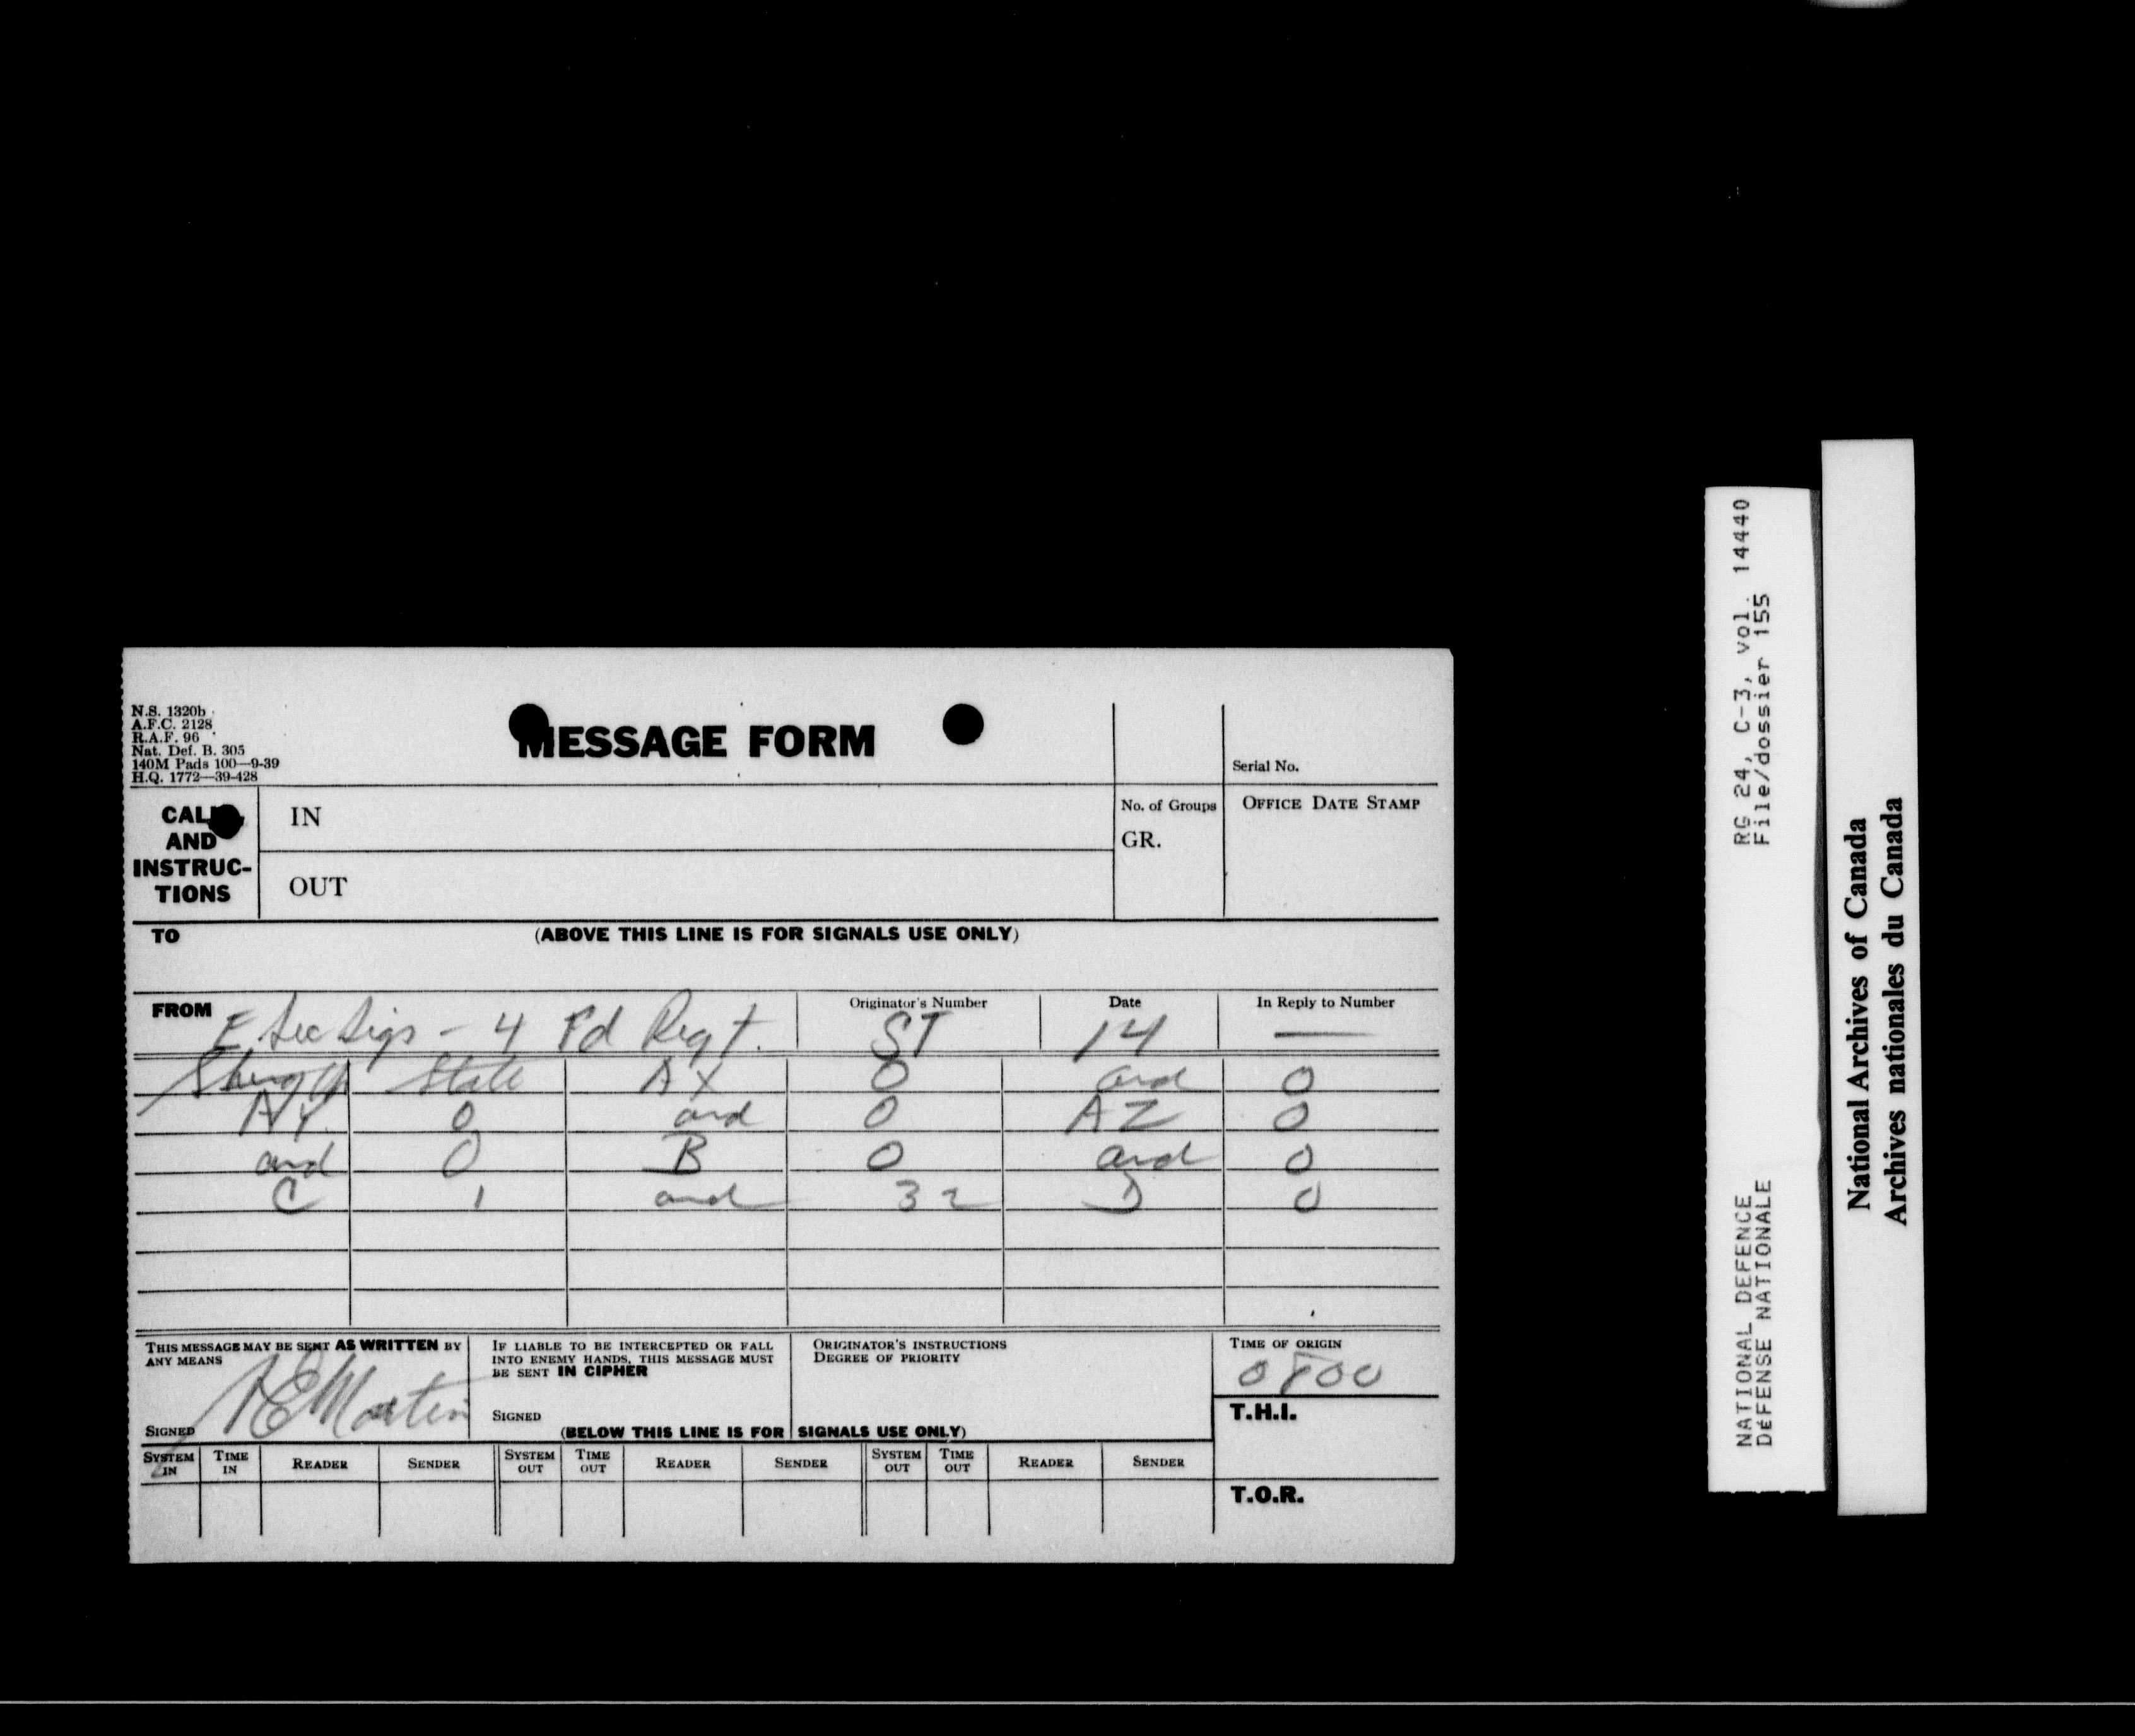 N.S. 1320b
A.F.C. 2128
R.A.F. 96
Nat. Def. B. 305
140M Pads 100—9-39
H.Q. 1772—39-428
MESSAGE FORM
Serial No.
CALL
AND
INSTRUC-
TIONS
IN
OUT
No. of Groups
GR.
OFFICE DATE STAMP
TO
(ABOVE THIS LINE IS FOR SIGNALS USE ONLY)
FROM E Sec Sigs - 4 Fd Regt.
Originator's Number
ST
Date
14
In Reply to Number
—
State AX 0 and 0
AY 0 and 0 AZ 0
and 0 B 0 and 0
C 1 and 32 D 0
THIS MESSAGE MAY BE SENT AS WRITTEN BY
ANY MEANS
Martin
SIGNED
IF LIABLE TO BE INTERCEPTED OR FALL
INTO ENEMY HANDS, THIS MESSAGE MUST
BE SENT IN CIPHER
SIGNED
ORIGINATOR'S INSTRUCTIONS
DEGREE OF PRIORITY
TIME OF ORIGIN
0800
T.H.I.
T.O.R.
(BELOW THIS LINE IS FOR SIGNALS USE ONLY)
SYSTEM IN TIME IN READER SENDER SYSTEM OUT TIME OUT READER SENDER SYSTEM OUT TIME OUT READER SENDER
RG 24, C-3, vol. 14440
File/dossier 155
NATIONAL DEFENCE
DÉFENSE NATIONALE
National Archives of Canada
Archives nationales du Canada